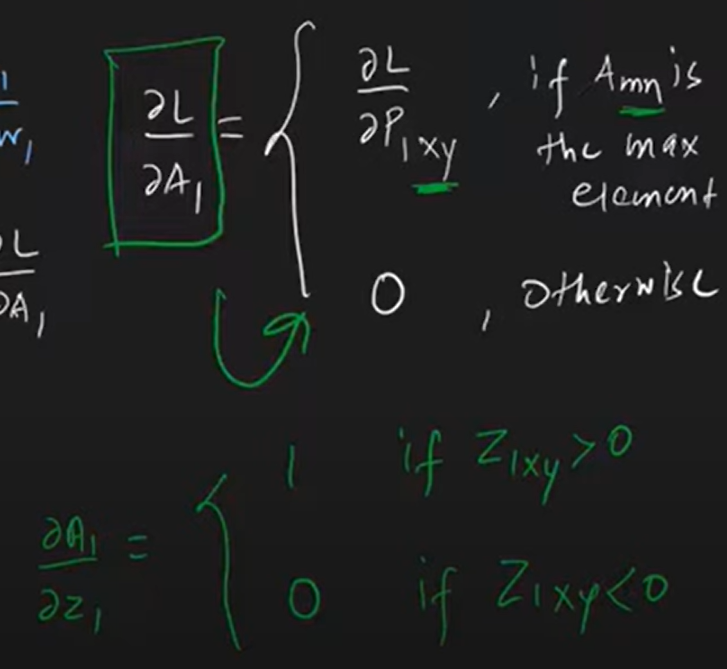 ∂L/∂A₁ = { ∂L/∂P₁xy , if Amn is
the max
element
0 , otherwise
∂A₁/∂z₁ = { 1 if Z₁xy>0
0 if Z₁xy<0
∂L/∂A₁